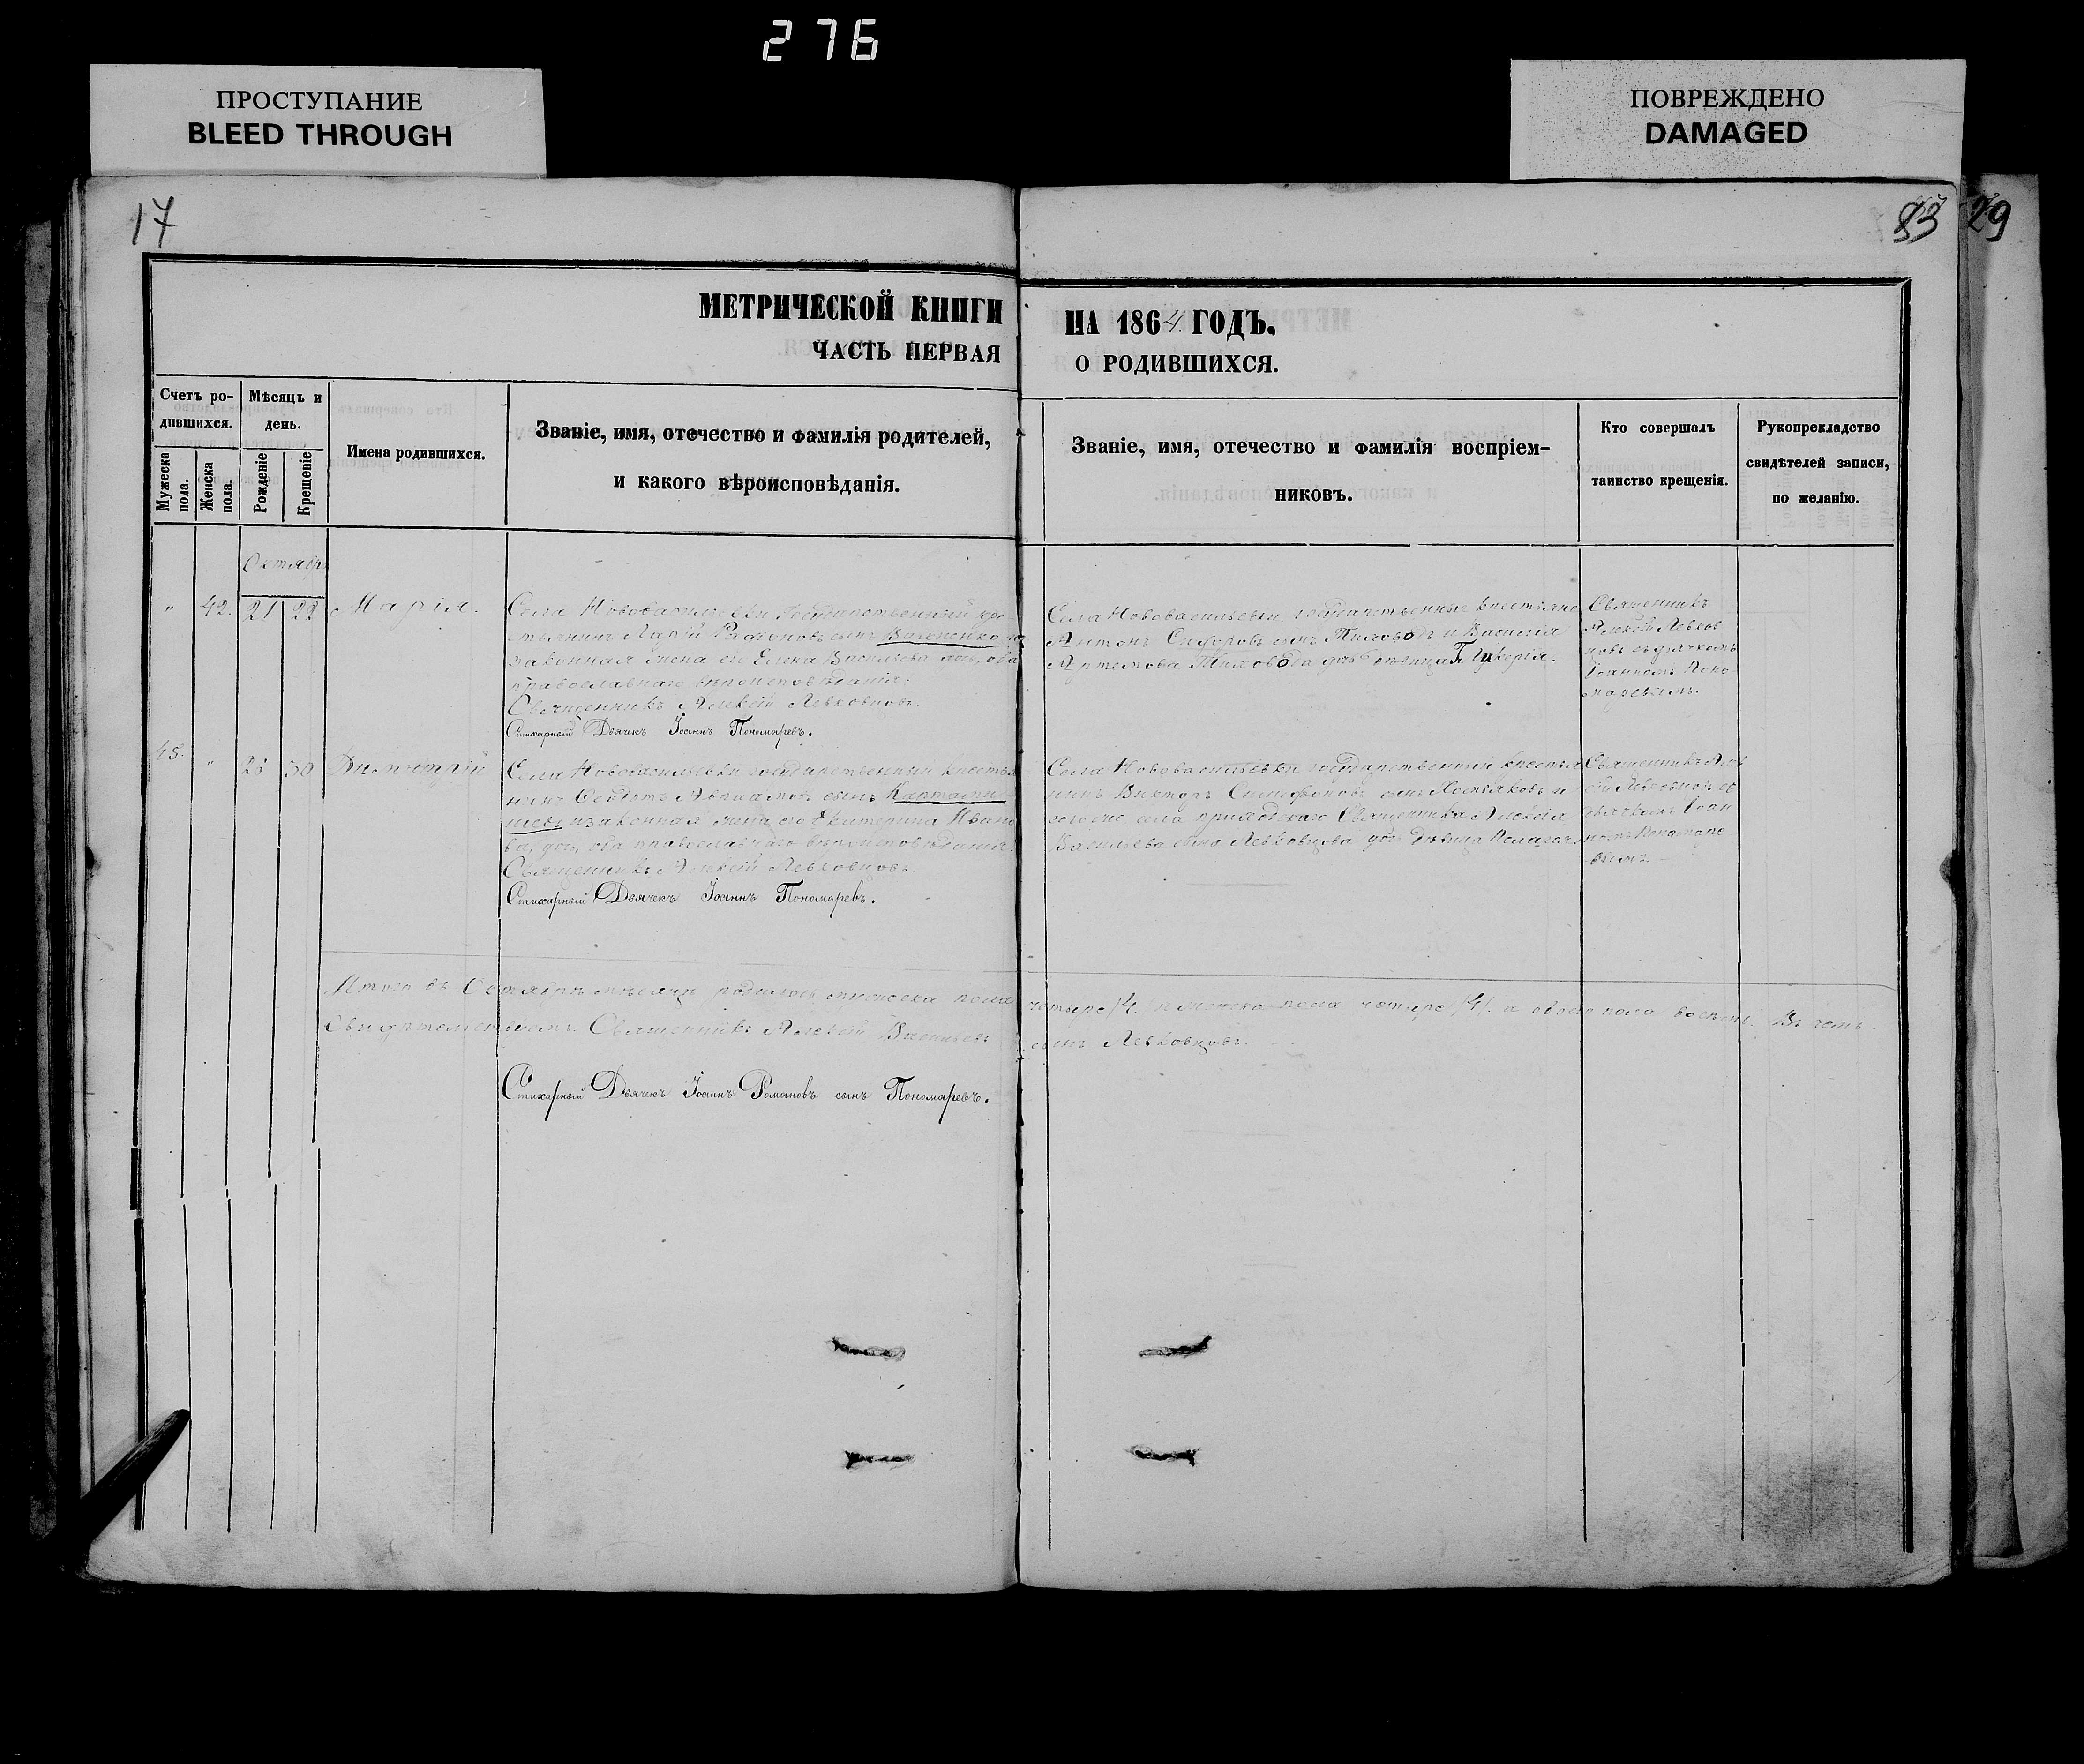 276
ПРОСТУПАНИЕ
BLEED THROUGH
ПОВРЕЖДЕНО
DAMAGED
17
83 29
МЕТРИЧЕСКОЙ КНИГИ НА 1864 ГОДЪ.
ЧАСТЬ ПЕРВАЯ О РОДИВШИХСЯ.
Счетъ ро-
дившихся.
Мужеска пола.
Женска пола.
Мѣсяцъ и
день.
Рожденіе
Крещеніе
Имена родившихся.
Званіе, имя, отечество и фамилія родителей,
и какого вѣроисповѣданія.
Званіе, имя, отечество и фамилія воспріем-
никовъ.
Кто совершалъ
таинство крещенія.
Рукоприкладство
свидѣтелей записи,
по желанію.
Октябр
" 42. 21 22 Марія.
Села Нововасильевки Государственный кре
стьянинъ сынъ
законная жена его Елена Васильева дочь, оба
православнаго вѣроисповѣданія.
Священникъ Алексій Левковцовъ.
Стихарный Дьячекъ Іоаннъ Пономаревъ.
Села Нововасильевки государственные крестьяне
Антонъ Сидоровъ сынъ и Василія
Артемова дочь дѣвица Гликерія.
Священникъ
Алексій Левков
цовъ съ дьячкомъ
Іоанномъ Поно
маревымъ.
45. " 30 Димитрій
Села Нововасильевки государственный крестья
нинъ Авраамовъ сынъ Картами
шевъ и законная жена его Екатерина Ивано
ва дочь, оба православнаго вѣроисповѣданія.
Священникъ Алексій Левковцовъ.
Стихарный Дьячекъ Іоаннъ Пономаревъ.
Села Нововасильевки государственный крестья
нинъ Викторъ сынъ и
того же села приходскаго Священника Алексія
Васильева сына Левковцова дочь дѣвица
Священникъ Алек
сій Левковцовъ съ
дьячкомъ Іоан
номъ Пономаре
вымъ.
Итого въ Октябрѣ мѣсяцѣ родилось мужеска пола четыре /4/. и женска пола четыре /4/. а обоего пола восемь. Въ чемъ
Свидѣтельствуемъ. Священникъ Алексій Васильевъ сынъ Левковцовъ.
Стихарный Дьячекъ Іоаннъ Романовъ сынъ Пономаревъ.